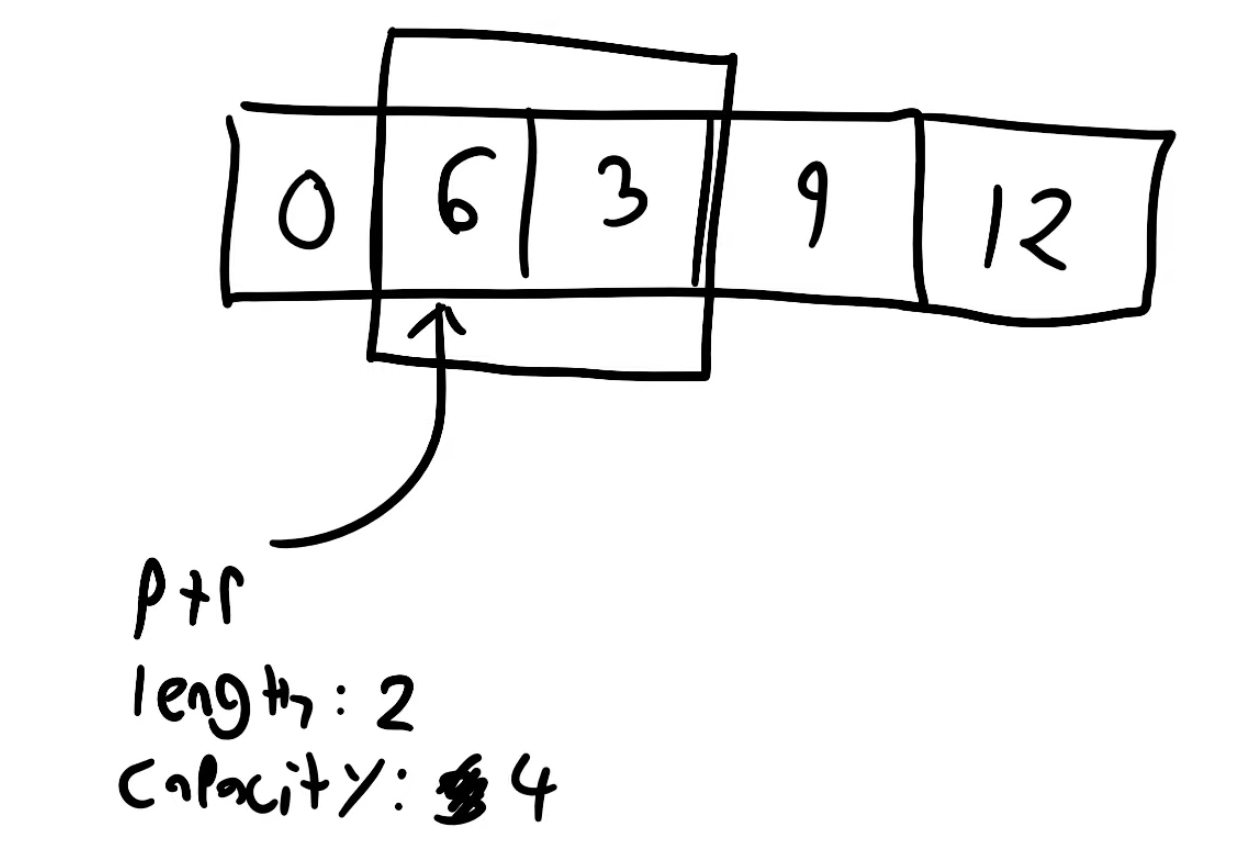 0 6 3 9 12
ptr
length: 2
capacity: 4